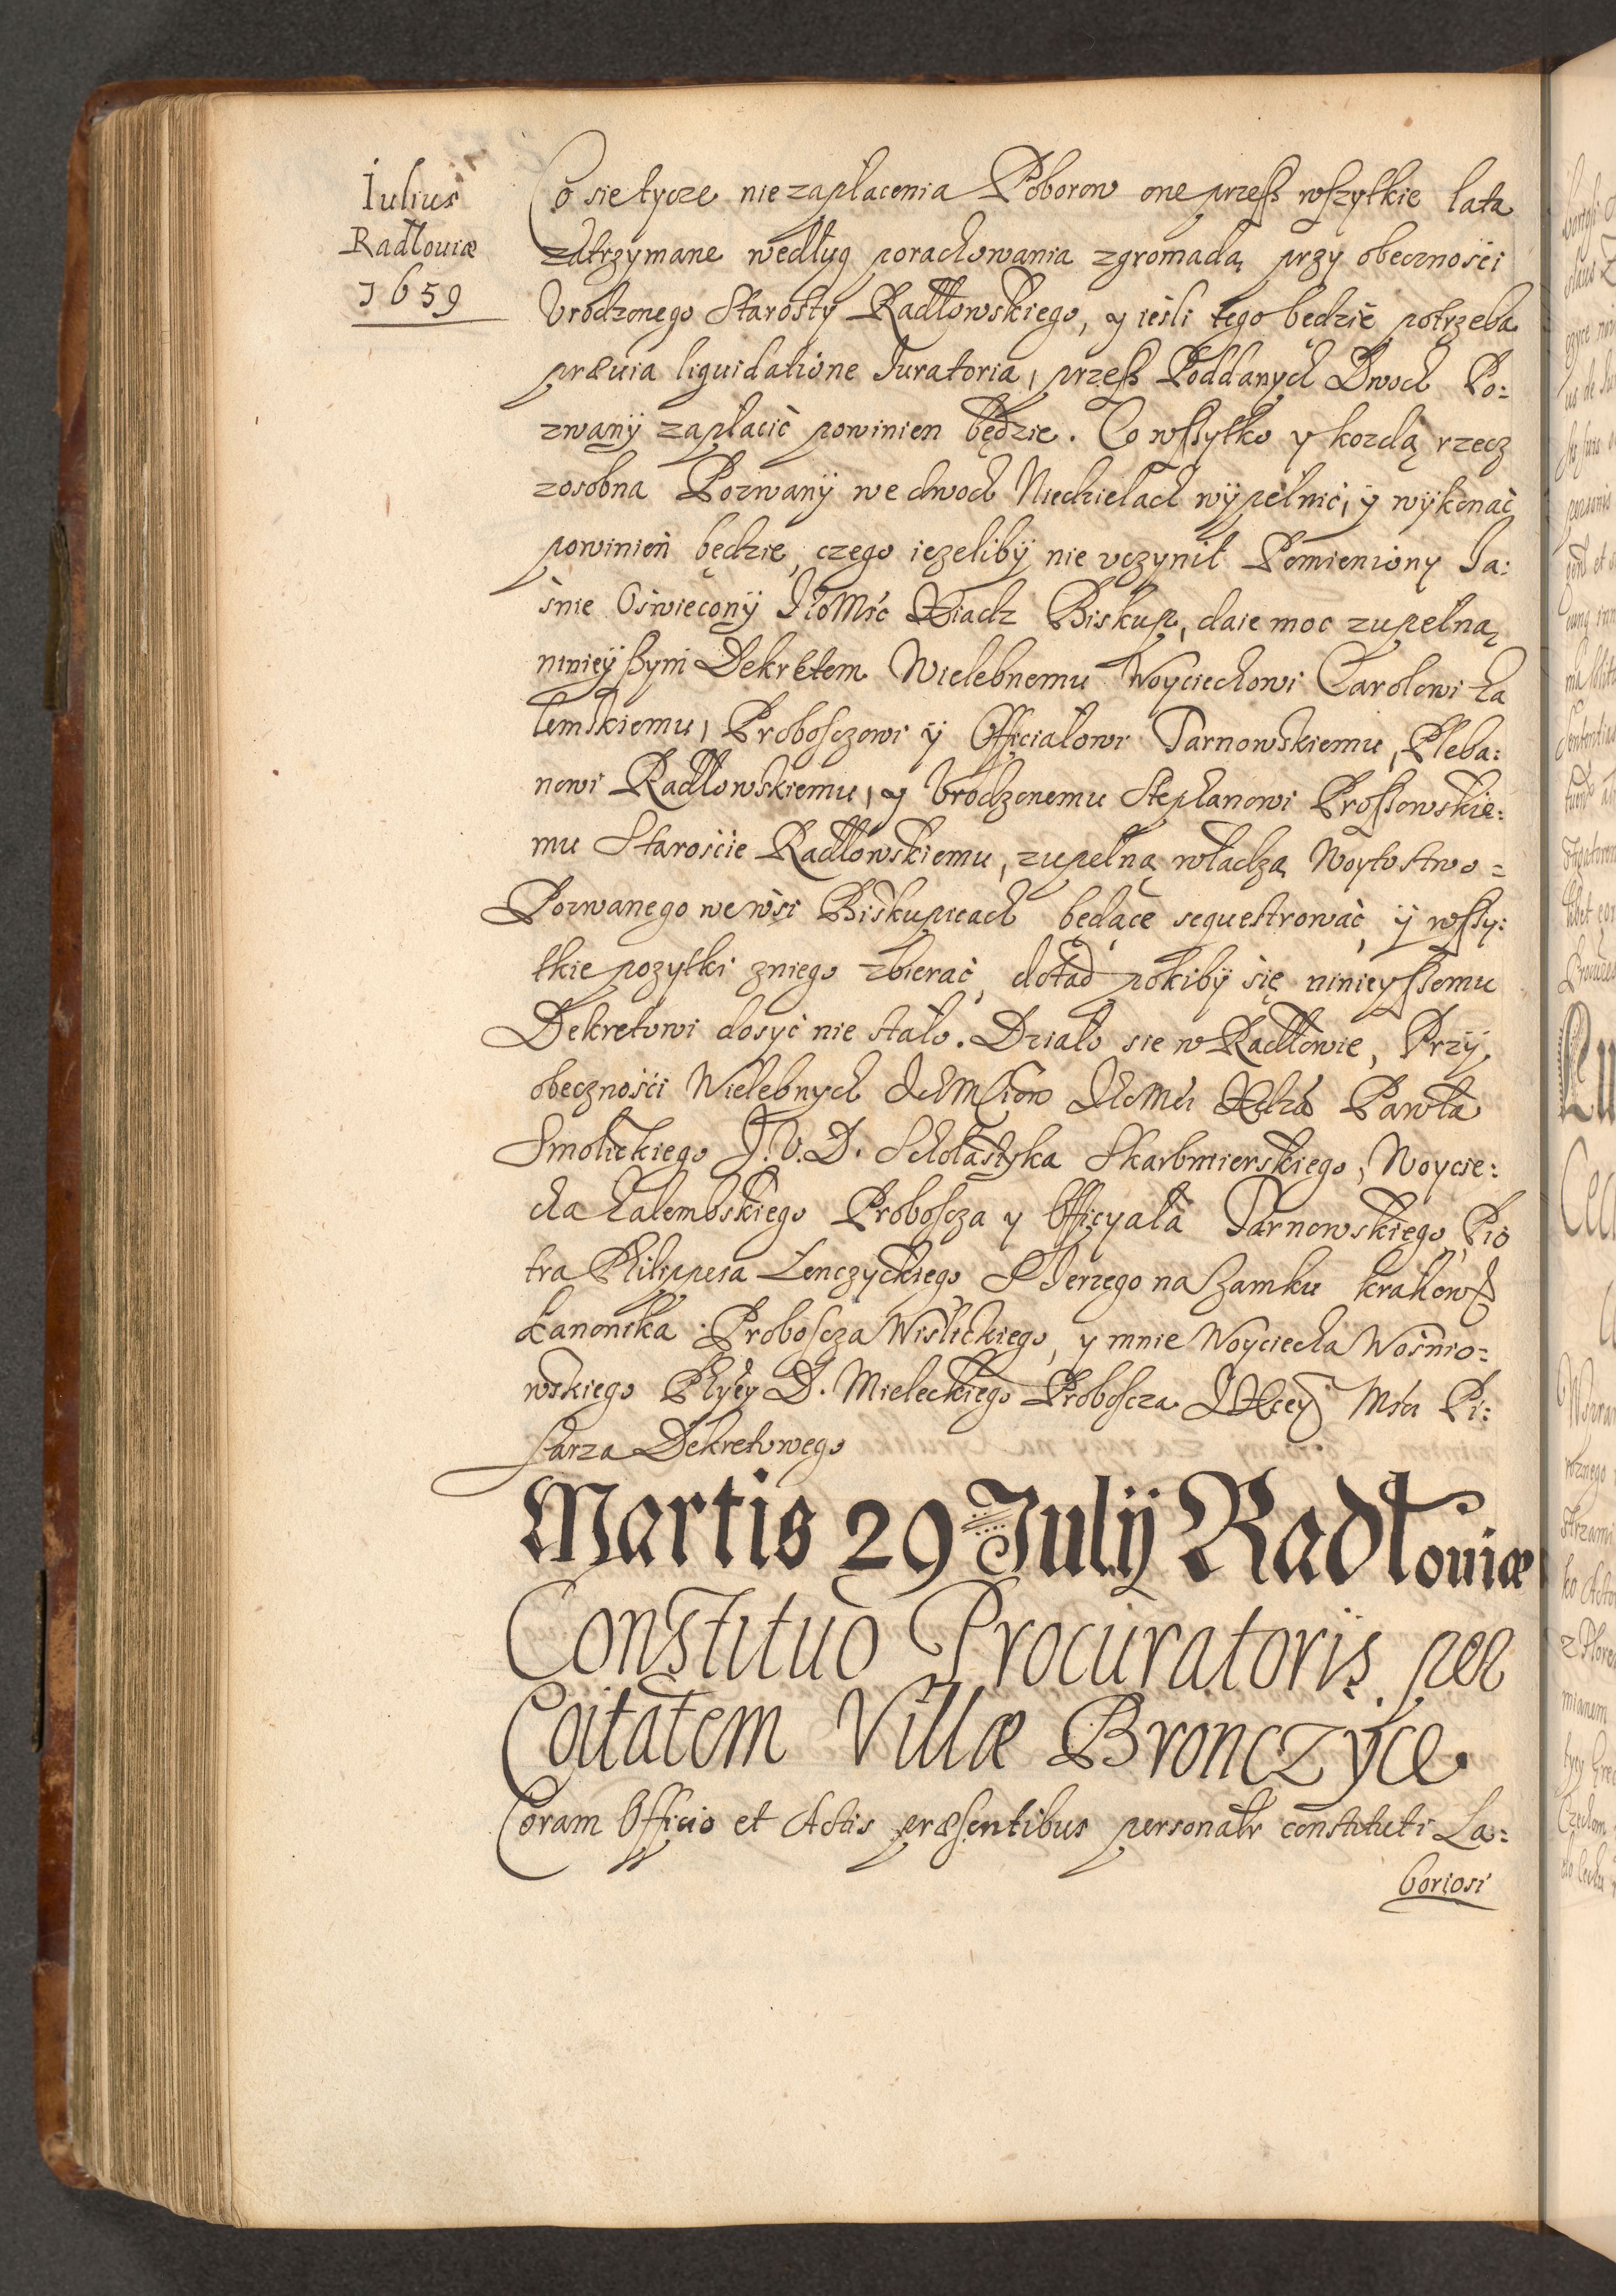 Iulius
Radłouiæ
1659
Co sie tycze nie zapłacenia Poborow one przeß wszytkie lata
zatrzymane według porachowania zgromadą przy obecznosci
Vrodzonego Starosty Radłowskiego, y iesli tego będzie potrzeba
præuia liquidatione Iuratoria, przeß Poddanych Dwoch Po:
zwany zapłacić powinien będzie. Co wssytko y kozdą rzecz
zosobna Pozwany we dwoch Niedzielach wypełnić, y wykonać
powinien będzie, czego iezeliby nie vczynił Pomieniony Ia:
śnie Oświecony IchoMść Xiądz Biskup, daie moc zupełną
ninieyßym Dekretem Wielebnemu Woyciechowi Carolowi Ła
lemskiemu, Proboszczowi y Officiałowi Tarnowskiemu, Pleba:
nowi Radłowskiemu, y Vrodzonemu Stephanowi Prossowskie:
mu Staroście Radłowskiemu, zupełną władzą Woytostwo=
Pozwanego we wsi Biskupicach będące sequestrować, y wssy:
tkie pozytki zniego zbierać, dotąd pokiby się ninieyssemu
Dekretowi dosyć nie stało. Działo sie w Radłowie, Przy
obecznosci Wielebnych IchMściow IchoMści Xdza Pawła
Smolickiego I.V.D. Scholastyka Skarbmierskiego, Woycie:
cha Łalembskiego Proboscza y Officyała Tarnowskiego, Pio
tra Philippeia Lenczyckiego S Ierzego na Zamku krakows
Kanonika Proboscza Wislickiego, y mnie Woyciecha Wośnio=
wskiego D. Mieleckiego Proboscza Mści Pi:
sarza Dekretowego
Martis 29 Julij Radłouiæ
Constituo Procuratoris per
Coitatem Villæ Bronczyce.
Coram Officio et Actis præsentibus personalr constituti La:
boriosi